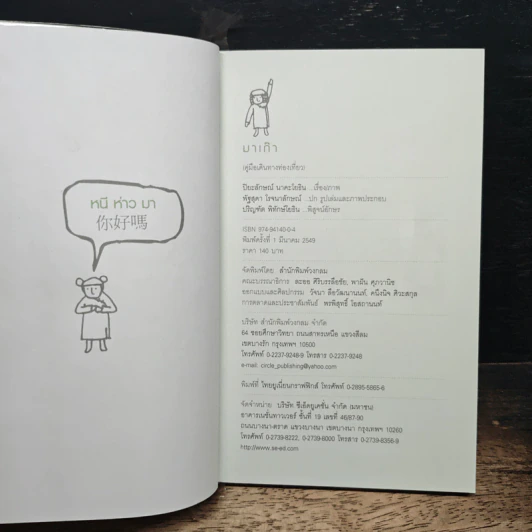 หนี ห่าว มา
你好嗎
มาเก๊า
คู่มือเดินทางท่องเที่ยว
ปิยะลักษณ์ นาคะโยธิน ...เรื่อง/ภาพ
พัฐสุดา โรจนาลักษณ์ ...ปก รูปเล่มและภาพประกอบ
ปริญทัต พิทักษ์โยธิน ...พิสูจน์อักษร
ISBN 974-94140-0-4
พิมพ์ครั้งที่ 1 มีนาคม 2549
ราคา 140 บาท
จัดพิมพ์โดย สำนักพิมพ์วงกลม
คณะบรรณาธิการ ละออ ศิริบรรลือชัย, พามิน ศุภวานิช
ออกแบบและศิลปกรรม วัจนา ลือวัฒนานนท์, คนึงนิจ ศิวะสกุล
การตลาดและประชาสัมพันธ์ พรพิสุทธิ์ โอสถานนท์
บริษัท สำนักพิมพ์วงกลม จำกัด
64 ซอยศึกษาวิทยา ถนนสาทรเหนือ แขวงสีลม
เขตบางรัก กรุงเทพฯ 10500
โทรศัพท์ 0-2237-9248-9 โทรสาร 0-2237-9248
e-mail: circle_publishing@yahoo.com
พิมพ์ที่ ไทยยูเนี่ยนกราฟฟิกส์ โทรศัพท์ 0-2895-5865-6
จัดจำหน่าย บริษัท ซีเอ็ดยูเคชั่น จำกัด (มหาชน)
อาคารเนชั่นทาวเวอร์ ชั้นที่ 19 เลขที่ 46/87-90
ถนนบางนา-ตราด แขวงบางนา เขตบางนา กรุงเทพฯ 10260
โทรศัพท์ 0-2739-8222, 0-2739-8000 โทรสาร 0-2739-8356-9
http://www.se-ed.com